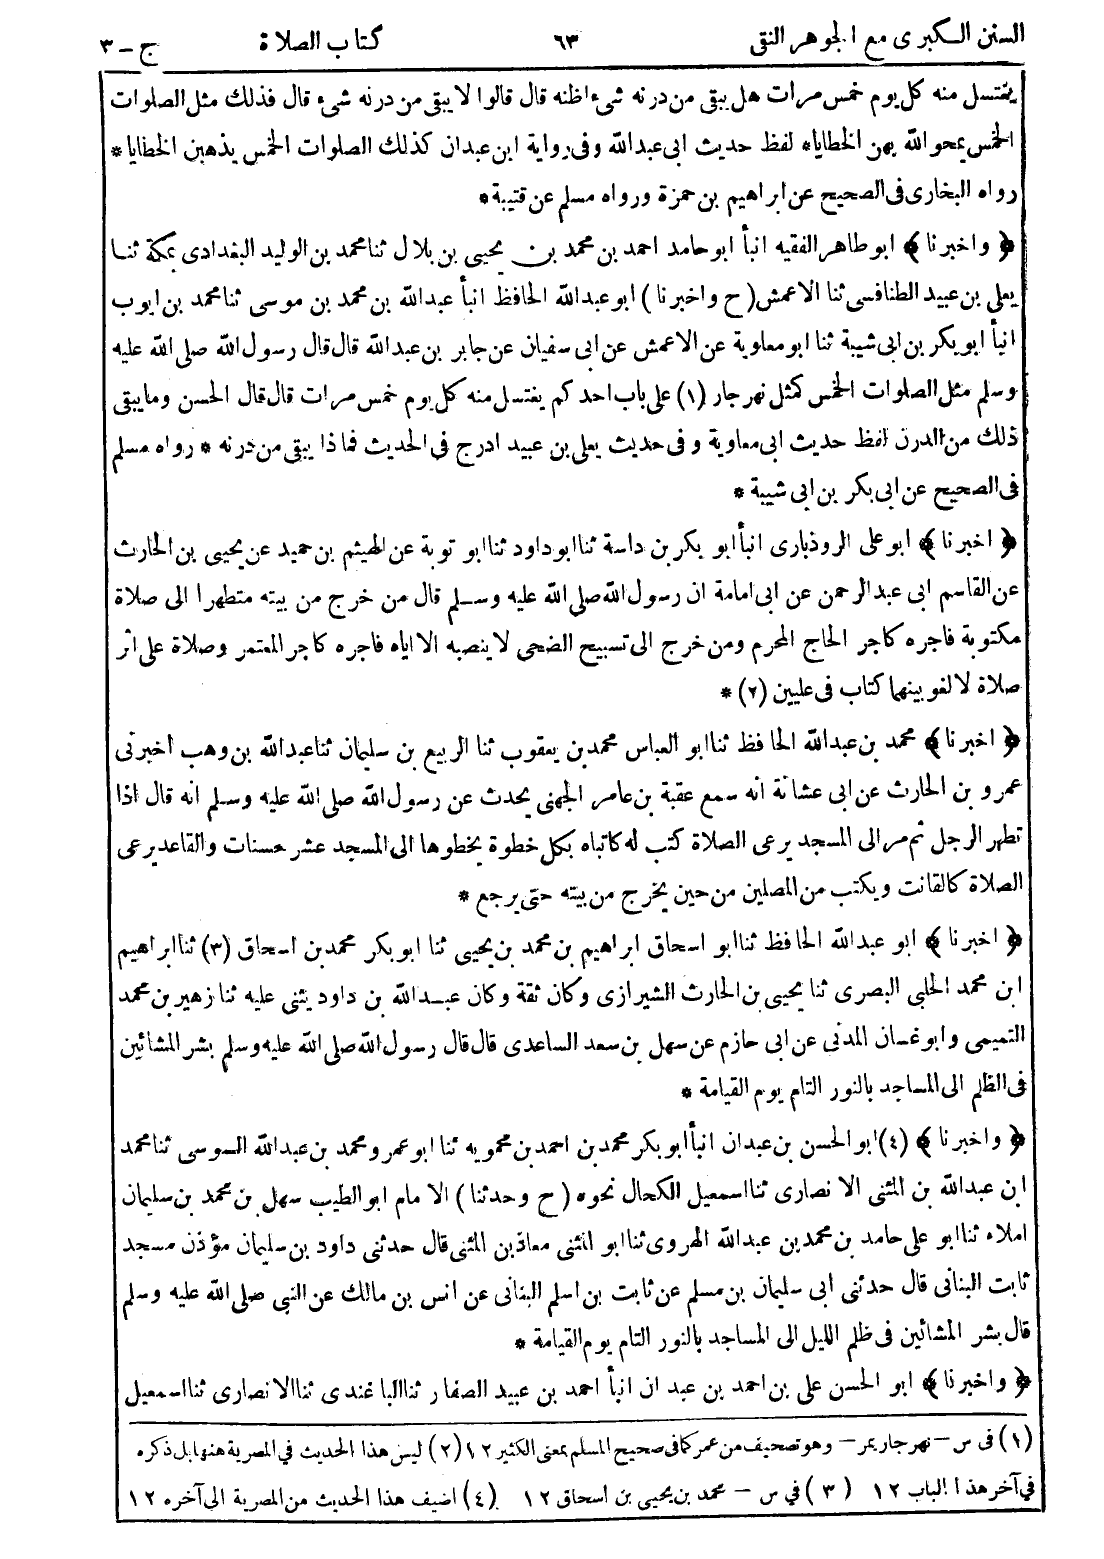 السنن الكبرى مع الجوهر النقى ٦٣ كتاب الصلاة ج - ٣
يغتسل منه كل يوم خمس مرات هل يبقى من درنه شىء اظنه قال قالوا لا يبقى من درنه شىء قال فذلك مثل الصلوات
الخمس يمحو الله بهن الخطايا* لفظ حديث ابى عبدالله وفى رواية ابن عبدان كذلك الصلوات الخمس يذهبن الخطايا *
رواه البخارى فى الصحيح عن ابراهيم بن حمزة ورواه مسلم عن قتيبة *
﴿ واخبرنا ﴾ ابو طاهر الفقيه انبأ ابو حامد احمد بن محمد بن يحيى بن بلال ثنا محمد بن الوليد البغدادى بمكة ثنا
يعلى بن عبيد الطنافسى ثنا الاعمش ( ح واخبرنا ) ابو عبدالله الحافظ انبأ عبدالله بن محمد بن موسى ثنا محمد بن ايوب
انبأ ابو بكر بن ابى شيبة ثنا ابو معاوية عن الاعمش عن ابى سفيان عن جابر بن عبدالله قال قال رسول الله صلى الله عليه
وسلم مثل الصلوات الخمس كمثل نهر جار (١) على باب احد كم يغتسل منه كل يوم خمس مرات قال قال الحسن وما يبقى
ذلك من الدرن لفظ حديث ابى معاوية وفى حديث يعلى بن عبيد ادرج فى الحديث فماذا يبقى من درنه * رواه مسلم
فى الصحيح عن ابى بكر بن ابى شيبة *
﴿ اخبرنا ﴾ ابو على الروذبارى انبأ ابو بكر بن داسة ثنا ابو داود ثنا ابو توبة عن الهيثم بن حميد عن يحيى بن الحارث
عن القاسم ابى عبد الرحمن عن ابى امامة ان رسول الله صلى الله عليه وسلم قال من خرج من بيته متطهرا الى صلاة
مكتوبة فاجره كاجر الحاج المحرم ومن خرج الى تسبيح الضحى لا ينصبه الا اياه فاجره كاجر المعتمر وصلاة على اثر
صلاة لا لغو بينهما كتاب فى عليين (٢) *
﴿ اخبرنا ﴾ محمد بن عبدالله الحافظ ثنا ابو العباس محمد بن يعقوب ثنا الربيع بن سليمان ثنا عبدالله بن وهب اخبرنى
عمرو بن الحارث عن ابى عشانة انه سمع عقبة بن عامر الجهنى يحدث عن رسول الله صلى الله عليه وسلم انه قال اذا
تطهر الرجل ثم مر الى المسجد يرعى الصلاة كتب له كاتباه بكل خطوة يخطوها الى المسجد عشر حسنات والقاعد يرعى
الصلاة كالقانت ويكتب من المصلين من حين يخرج من بيته حتى يرجع *
﴿ اخبرنا ﴾ ابو عبدالله الحافظ ثنا ابو اسحاق ابراهيم بن محمد بن يحيى ثنا ابو بكر محمد بن اسحاق (٣) ثنا ابراهيم
ابن محمد الحلبى البصرى ثنا يحيى بن الحارث الشيرازى وكان ثقة وكان عبدالله بن داود يثنى عليه ثنا زهير بن محمد
التميمى وابو غسان المدنى عن ابى حازم عن سهل بن سعد الساعدى قال قال رسول الله صلى الله عليه وسلم بشر المشائين
فى الظلم الى المساجد بالنور التام يوم القيامة *
﴿ واخبرنا ﴾ (٤) ابو الحسن بن عبدان انبأ ابو بكر محمد بن احمد بن محمويه ثنا ابو عمرو محمد بن عبدالله السوسى ثنا محمد
ابن عبدالله بن المثنى الانصارى ثنا اسمعيل الكحال نحوه ( ح وحدثنا ) الامام ابو الطيب سهل بن محمد بن سليمان
املاء ثنا ابو على حامد بن محمد بن عبدالله الهروى ثنا ابو المثنى معاذ بن المثنى قال حدثنى داود بن سليمان مؤذن مسجد
ثابت البنانى قال حدثنى ابى سليمان بن مسلم عن ثابت بن اسلم البنانى عن انس بن مالك عن النبى صلى الله عليه وسلم
قال بشر المشائين فى ظلم الليل الى المساجد بالنور التام يوم القيامة *
﴿ واخبرنا ﴾ ابو الحسن على بن احمد بن عبدان انبأ احمد بن عبيد الصفار ثنا الباغندى ثنا الانصارى ثنا اسمعيل
(١) فى س - نهر جار يمر - وهو تصحيف من عمر كما فى صحيح المسلم بمعنى الكثير ١٢ (٢) ليس هذا الحديث في المصرية هنها بل ذكره
في آخر هذا الباب ١٢ (٣) في س - محمد بن يحيى بن اسحاق ١٢ (٤) اضيف هذا الحديث من المصرية الى آخره ١٢